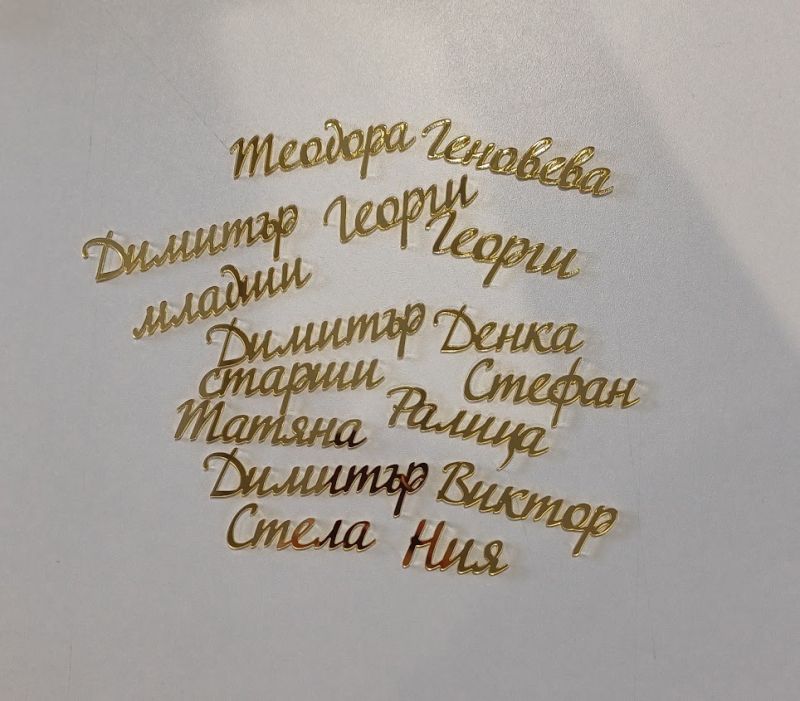 Теодора Геновева
Димитър Георги Георги
младши
Димитър Денка
старши Стефан
Татяна Ралица
Димитър Виктор
Стела Ния